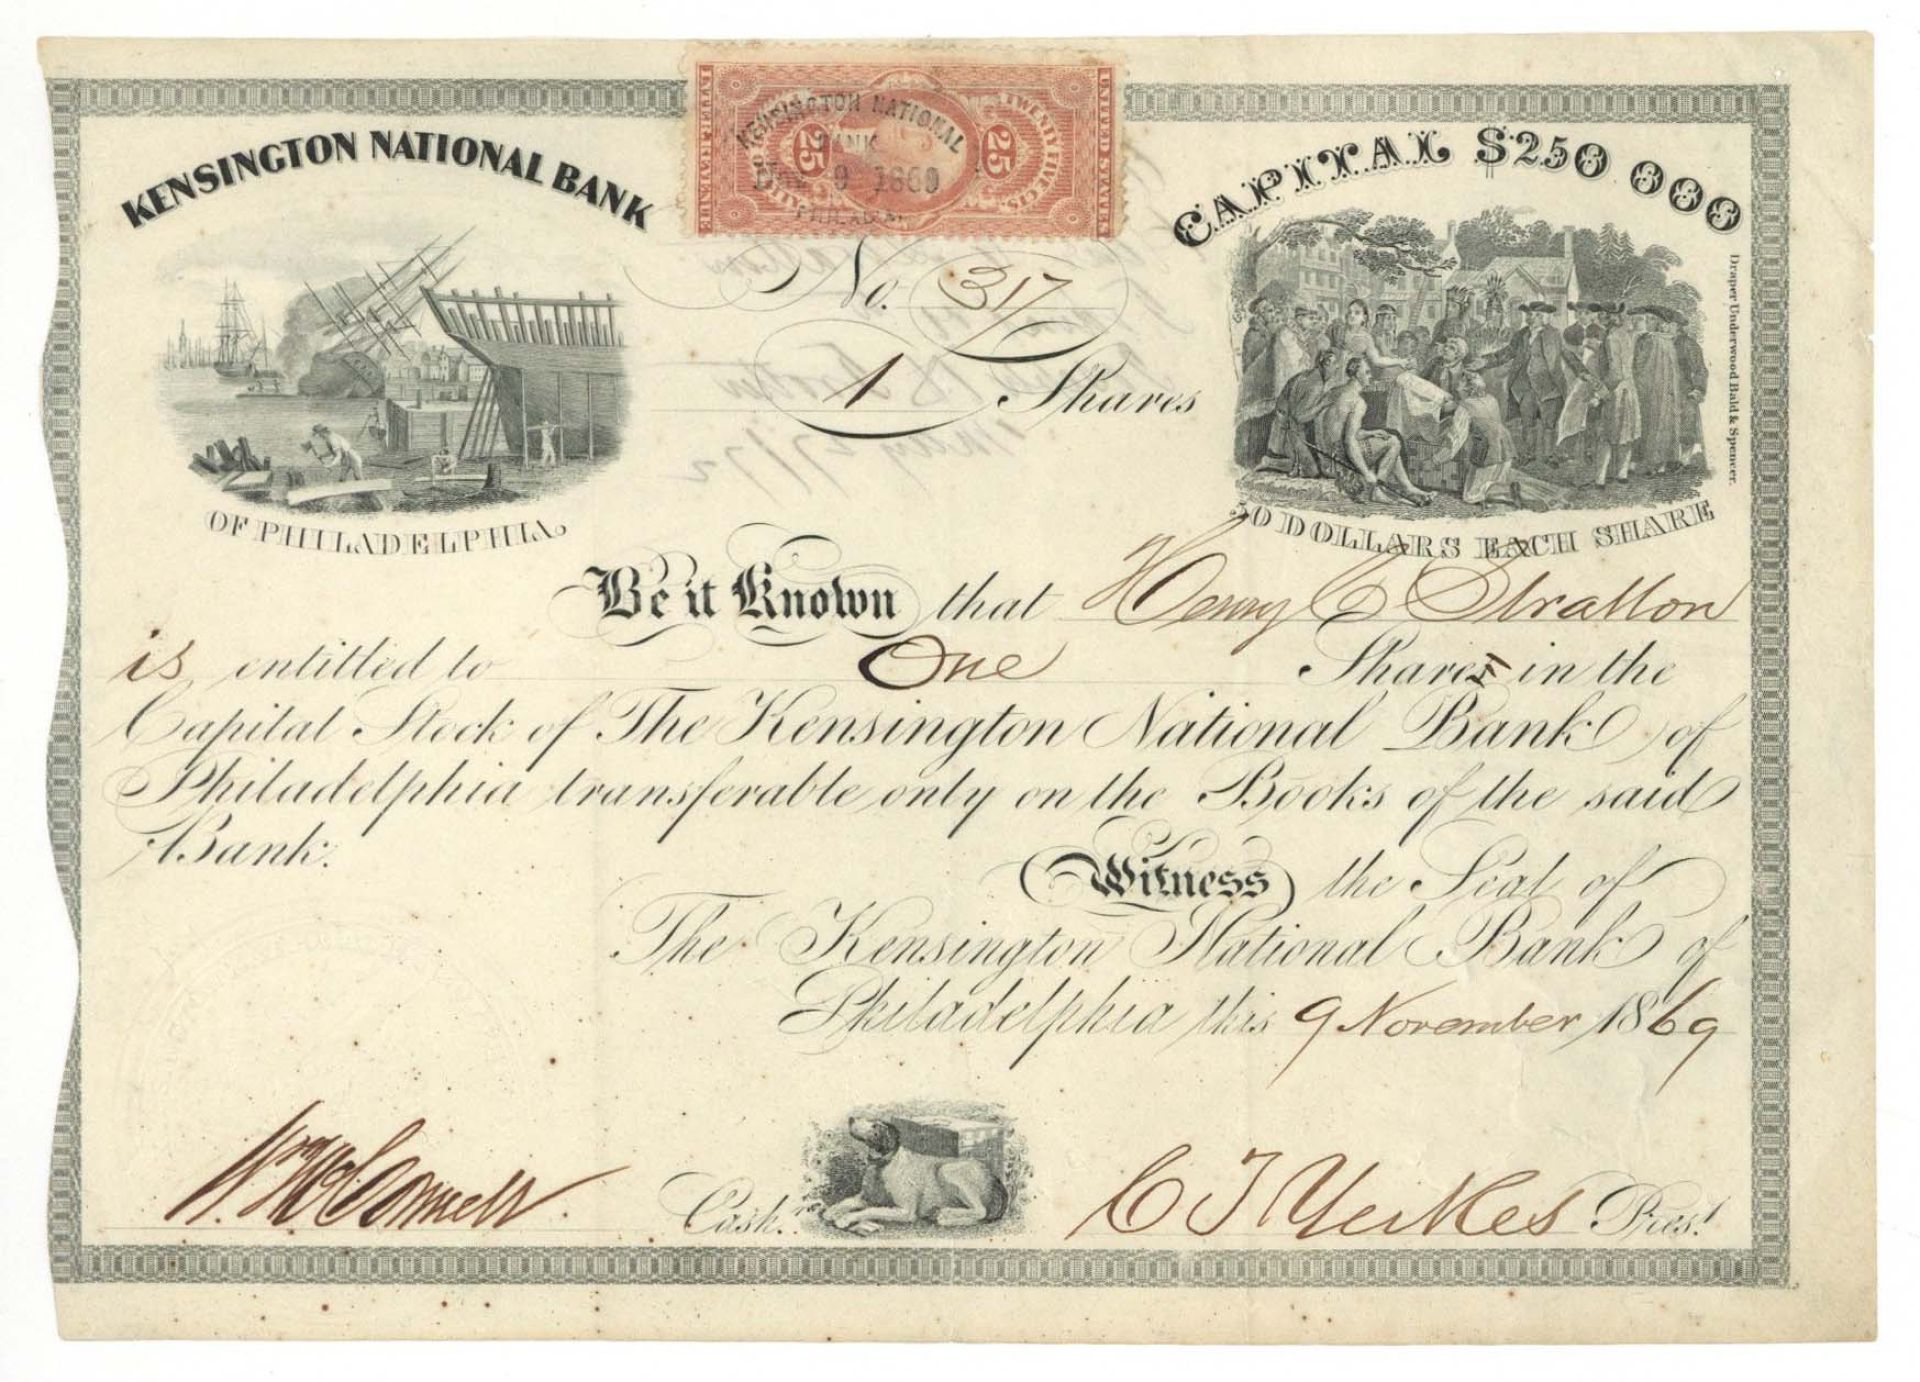 KENSINGTON NATIONAL BANK
OF PHILADELPHIA.
UNITED STATES
TWENTY FIVE CTS.
25 25
KENSINGTON NATIONAL
BANK
NOV 9 1869
PHILADA.
CAPITAL $250 000
50 DOLLARS EACH SHARE
Draper Underwood Bald & Spencer.
No. 317
1 Shares
Be it Known that Henry C Stratton
is entitled to One Share in the
Capital Stock of The Kensington National Bank of
Philadelphia transferable only on the Books of the said
Bank.
Witness the Seal of
The Kensington National Bank of
Philadelphia this 9 November 1869
Wm McConnell Cash.re C T Yerkes Pres.t